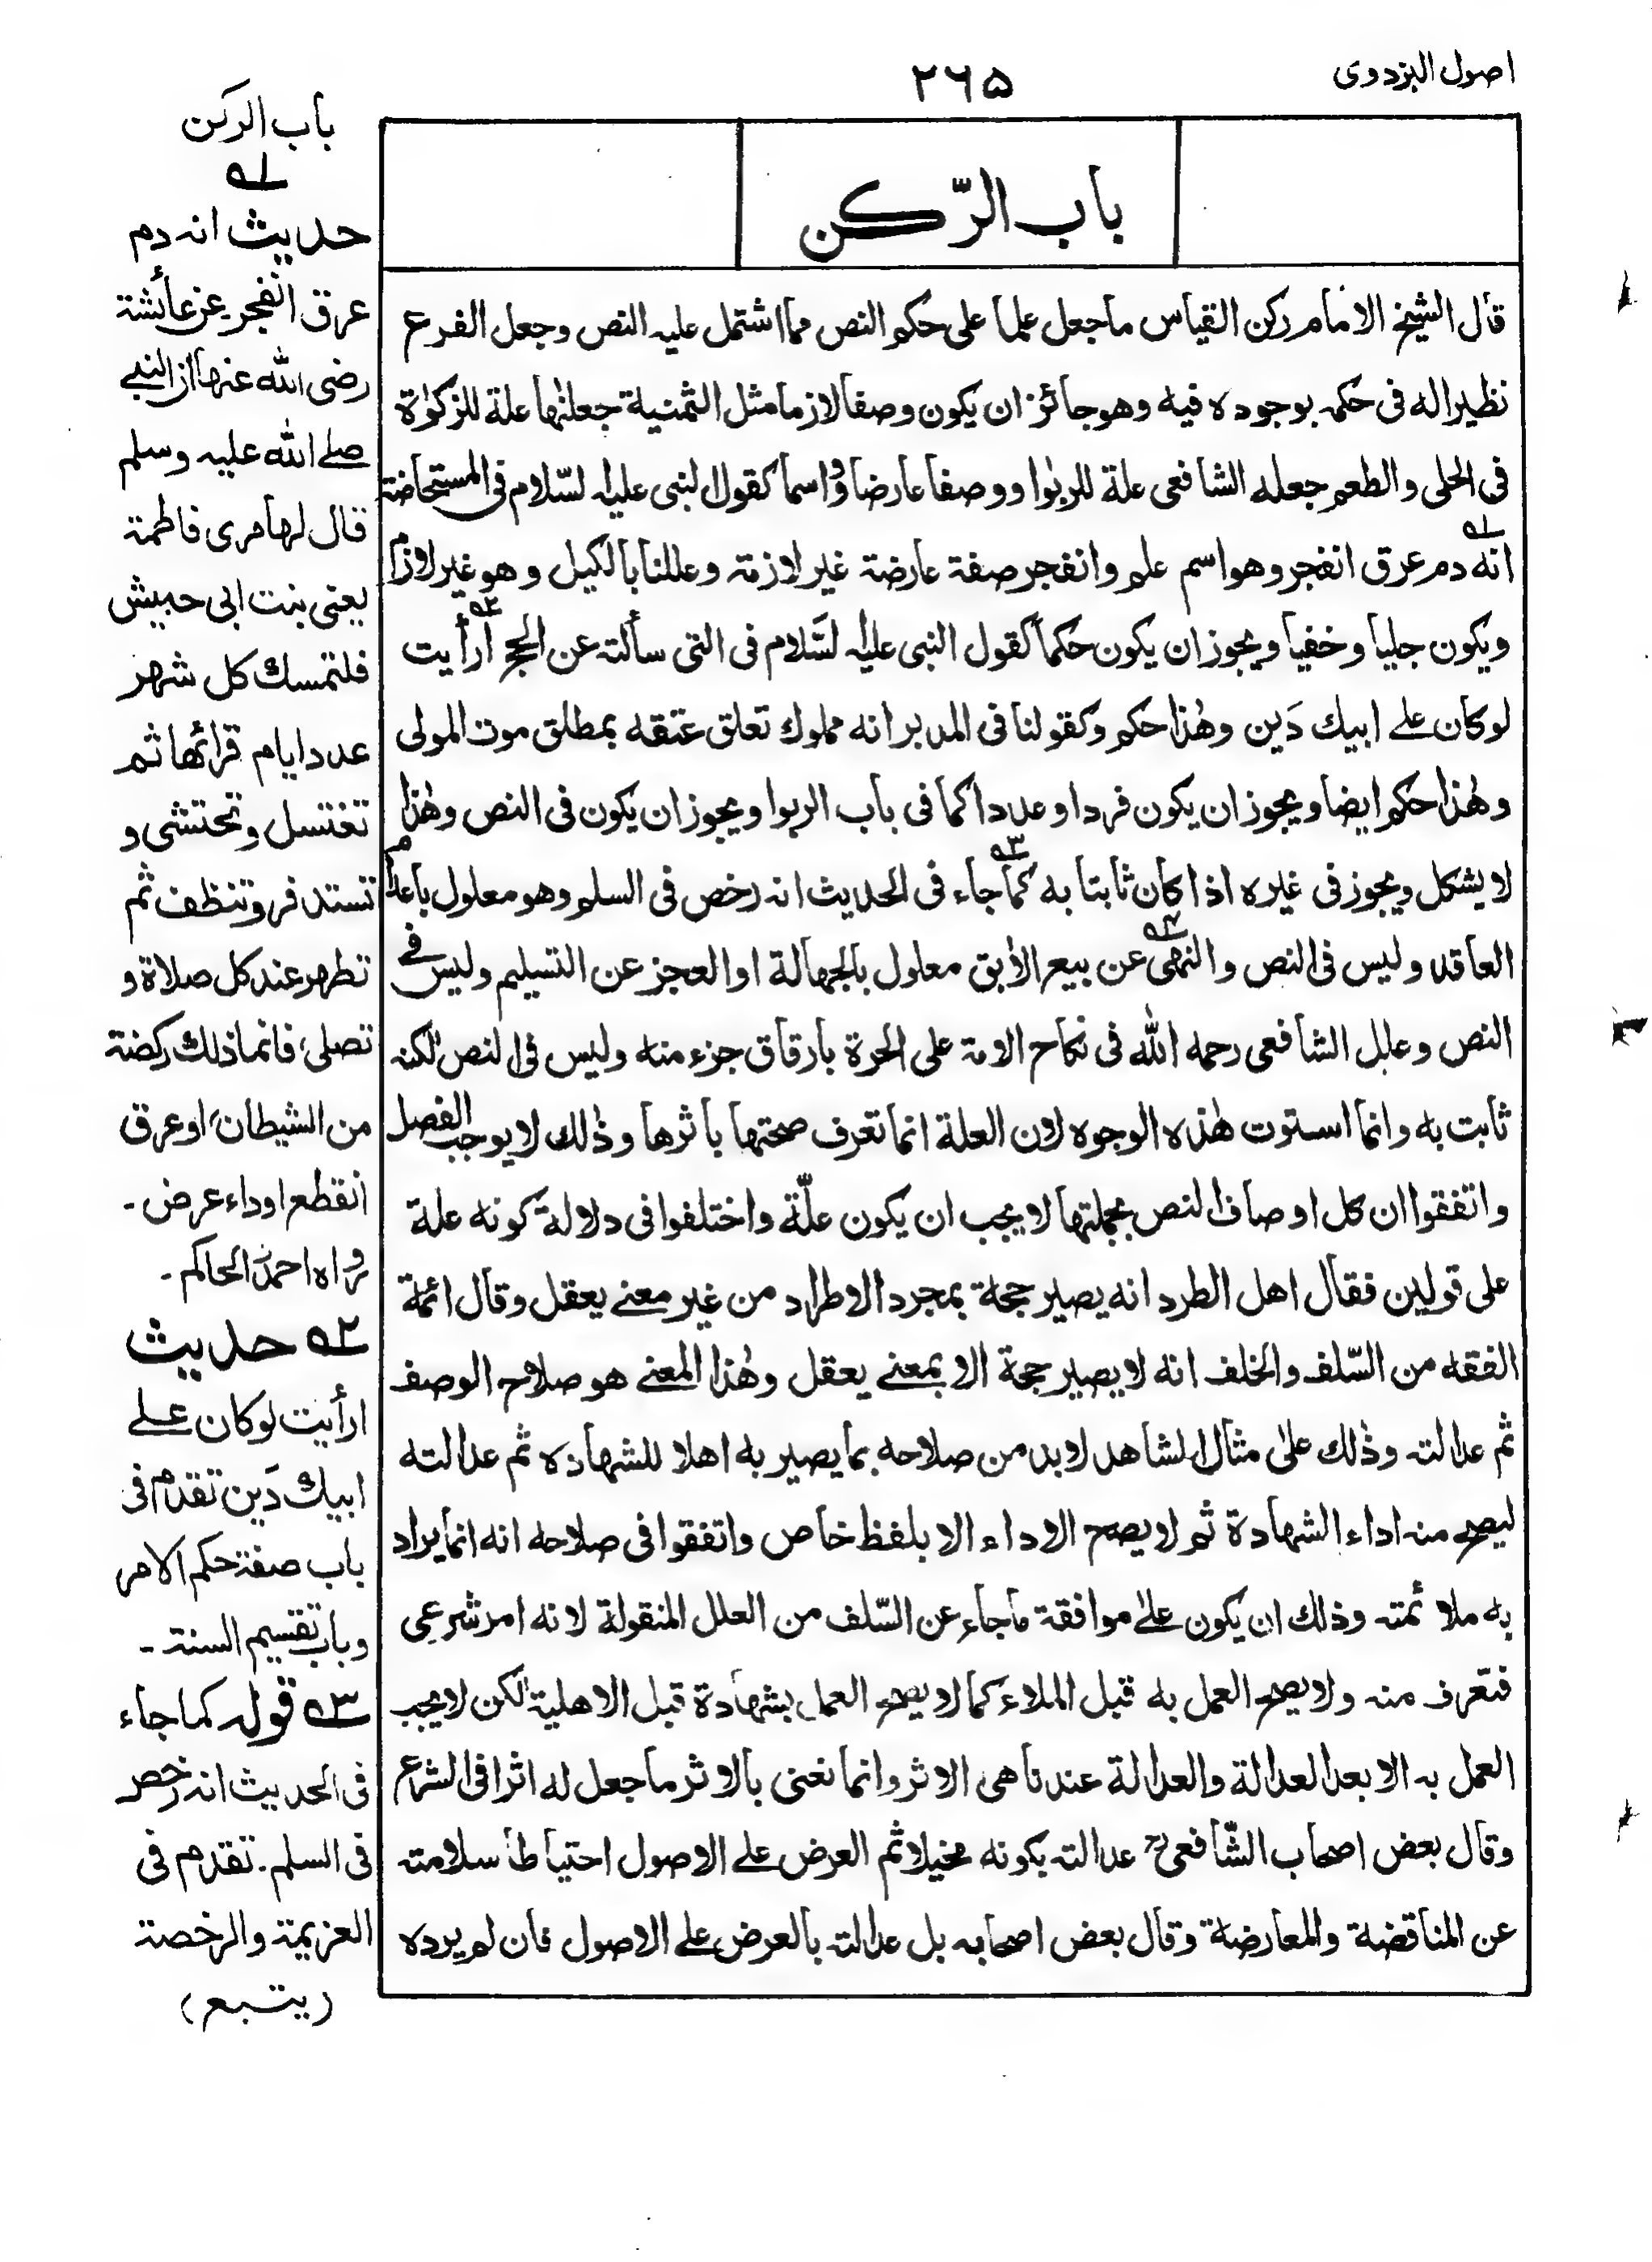 اصول البزدوی
۲۶۵
باب الرّكن
قال الشيخ الامام ركن القياس ماجعل علما على حكم النص مما اشتمل عليه النص وجعل الفرع
نظيرا له فى حكمه بوجوده فيه وهو جائز ان يكون وصفا لازما مثل الثمنية جعلنٰها علة للزكوٰة
فى الحلى والطعم جعله الشافعى علة للربٰوا ووصفا عارضا واسما كقول النبى عليه السّلام فى المستحاضة
انه دم عرق انفجر وهو اسم علم وانفجر صفة عارضة غير لازمة وعللنا بالكيل وهو غير لازم
ويكون جليا وخفيا ويجوز ان يكون حكما كقول النبى عليه السَّلام فى التى سألته عن الحج أرأيت
لوكان علے ابيك دَين وهٰذا حكم وكقولنا فى المدبر انه مملوك تعلق عتقه بمطلق موت المولى
وهٰذا حكم ايضا ويجوز ان يكون فردا وعددا كما فى باب الربوا ويجوز ان يكون فى النص وهٰذا
لا يشكل ويجوز فى غيره اذا كان ثابتا به كما جاء فى الحديث انه رخص فى السلم وهو معلول باعدام
العاقد وليس فى النص والنهى عن بيع الأبق معلول بالجهالة او العجز عن التسليم وليس فے
النص وعلل الشافعى رحمه الله فى نكاح الامة على الحرة بارقاق جزء منه وليس فى النص لٰكنه
ثابت به وانما استوت هٰذه الوجوه لان العلة انما تعرف صحتها باثرها وذٰلك لا يوجب الفصل
واتفقوا ان كل اوصاف النص بجملتها لا يجب ان يكون علّة واختلفوا فى دلالة كونه علة
على قولين فقال اهل الطرد انه يصير حجة بمجرد الاطراد من غير معنے يعقل وقال ائمة
الفقه من السّلف والخلف انه لا يصير حجة الا بمعنے يعقل وهٰذا المعنے هو صلاح الوصف
ثم عدالته وذٰلك علىٰ مثال الشاهد لا بد من صلاحه بما يصير به اهلا للشهادة ثم عدالته
ليصح منه اداء الشهادة ثم لا يصح الاداء الا بلفظ خاص واتفقوا فى صلاحه انه انما يراد
به ملائمته وذلك ان يكون علےٰ موافقة ماجاء عن السّلف من العلل المنقولة لانه امر شرعى
فتعرف منه ولا يصح العمل به قبل الملاء كما لا يصح العمل بشهادة قبل الاهلية لٰكن لا يجب
العمل به الا بعد العدالة والعدالة عندنا هى الاثر وانما نعنى بالاثر ماجعل له اثرا فى الشرع
وقال بعض اصحاب الشّافعىؒ عدالته بكونه مخيلا ثم العرض علے الاصول احتياطا سلامته
عن المناقضة والمعارضة وقال بعض اصحابه بل عدالته بالعرض علے الاصول فان لم يرده
باب الركن
۱ه
حديث انه دم
عرق انفجر عن عائشة
رضى الله عنها ان النبے
صلے الله عليه وسلم
قال لها مرى فاطمة
يعنى بنت ابى حبيش
فلتمسك كل شهر
عدد ايام قرائها ثم
تغتسل وتحتشى و
تستذفر وتنظف ثم
تطهر عند كل صلاة و
تصلى، فانما ذلك ركضة
من الشيطان، او عرق
انقطع او داء عرض ـ
رواه احمد والحاكم ـ
۲ه حديث
ارأيت لوكان علے
ابيك دَين تقدم فى
باب صفة حكم الامر
وباب تقسيم السنة ـ
۳ه قوله كما جاء
فى الحديث انه رخص
فى السلم. تقدم فى
العزيمة والرخصة
(يتبع)